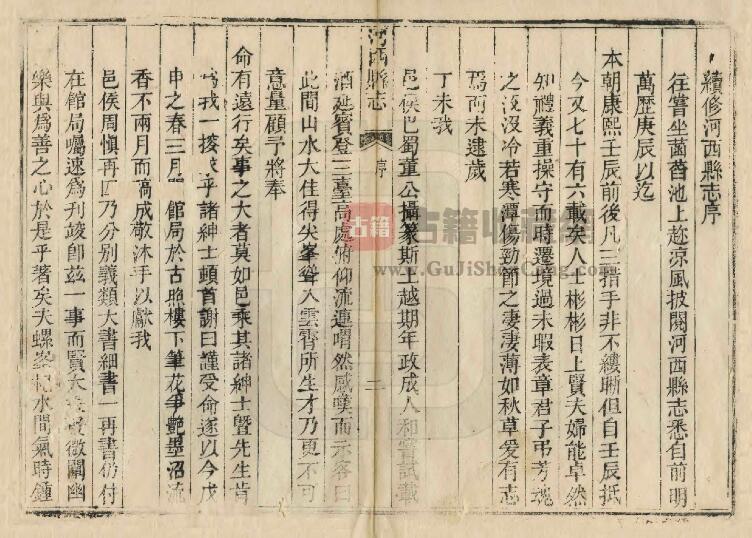 續修河西縣志序
往嘗坐菡萏池上趁涼風披閱河西縣志悉自前明
萬歷庚辰以迄
本朝康熙壬辰前後凡三措手非不縷晰但自壬辰抵
今又七十有六載矣人士彬彬日上賢夫婦能卓然
知禮義重操守而時遷境過未暇表章君子弔芳魂
之沒沒冷若寒潭傷勁節之凄凄薄如秋草爰有志
焉而未逮歲
丁未我
邑侯巴蜀董公攝篆斯土越期年政成人和嘗試載
酒延賓登三臺高處俯仰流連喟然感嘆而示客曰
此間山水大佳得尖峯聳入雲霄所生才乃更不可
意量顧予將奉
命有遠行矣事之大者莫如邑乘其諸紳士曁先生肯
為我一搜求乎諸紳士頓首謝曰謹受命遂以今戊
申之春三月 館局於古照樓下筆花爭艷墨沼流
香不兩月而稿成敬沐手以獻我
邑侯周慎再四乃分別義類大書細書一再書仍付
在館局囑速為刊竣卽兹一事而賢侯 微闡幽
樂與爲善之心於是乎著矣夫螺峯 水間氣時鍾
河西縣志
序
二
古籍
古籍收藏網
www.GuJiShouCang.com